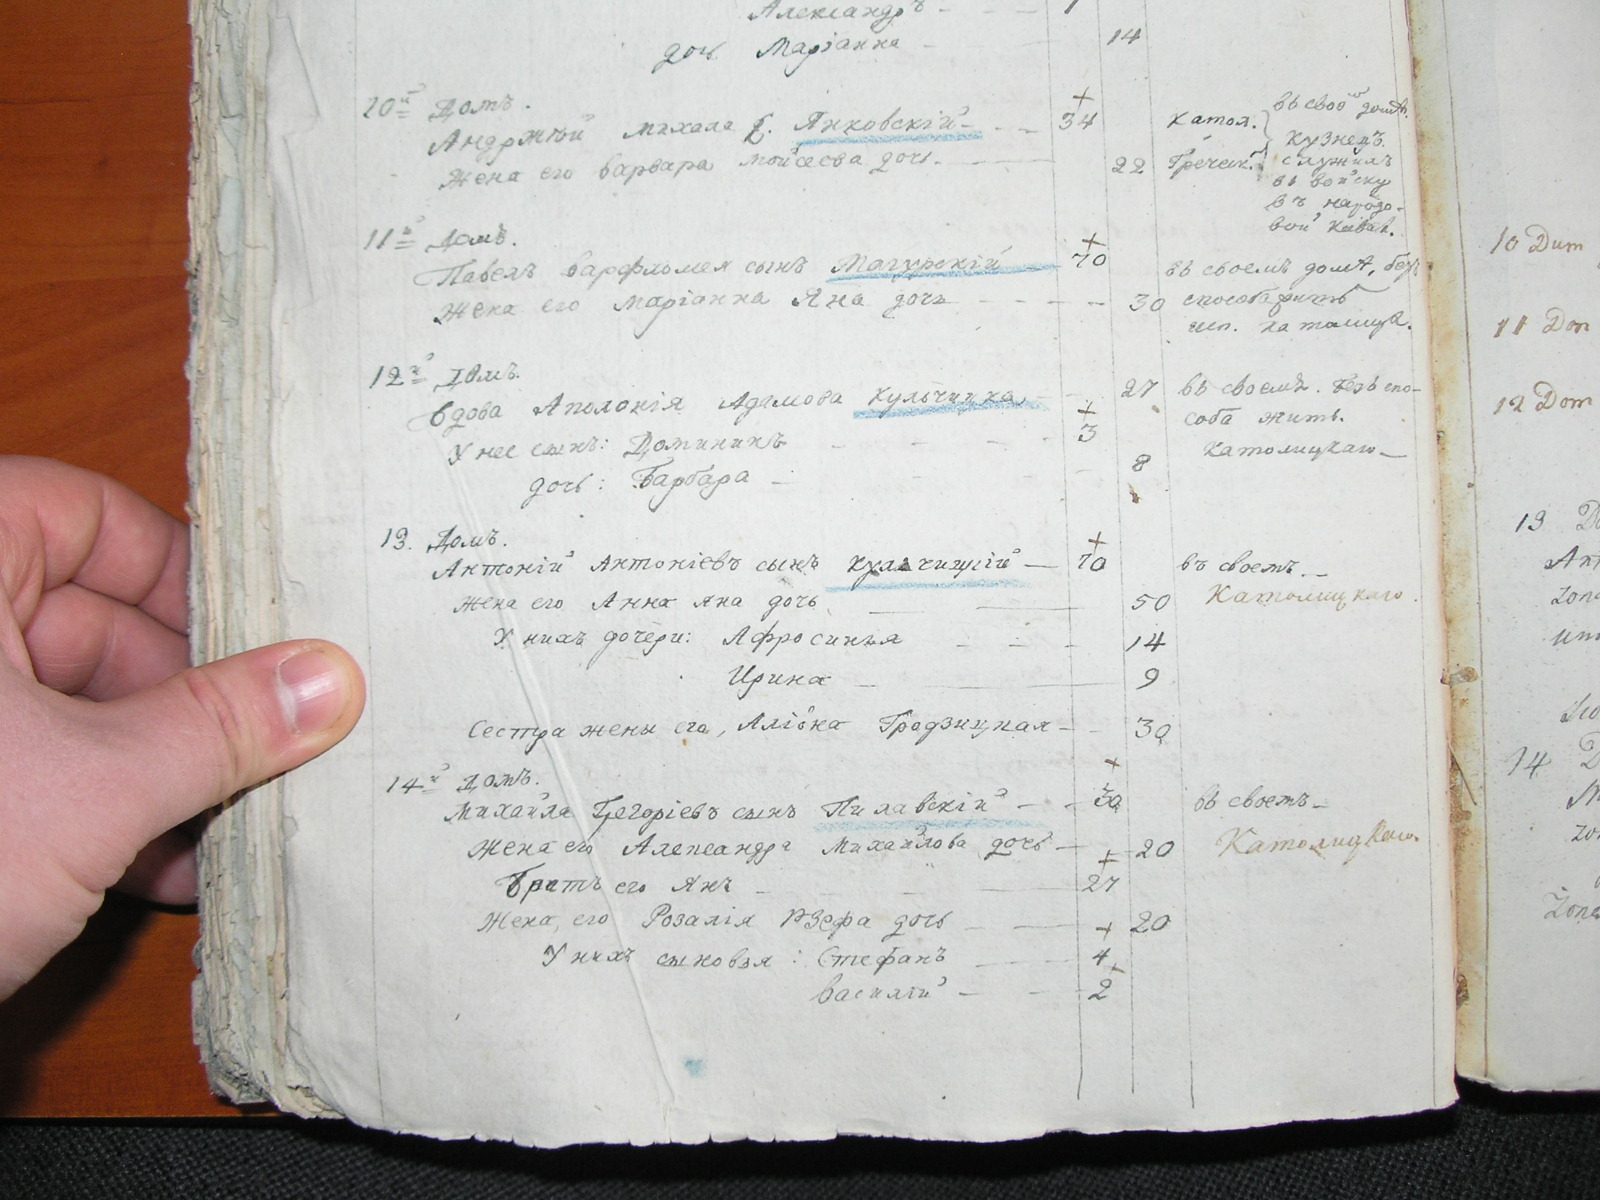 Александръ - - - 1
дочь Маріанна - 14
10й Домъ.
Андрѣй Михала С. Янковскій - - 34 Катол. въ своѣ домѣ.
Кузнецъ.
Жена его Варвара Мойсеева дочь. 22 Греческ. служилъ
въ войску
въ народо-
вой кавал.
11й Домъ.
Павелъ Варфломея сынъ Магурскій 70 въ своемъ домѣ, безъ
Жена его Маріанна Яна дочь - - - - 30 способа жить
исп. католицк.
12й Домъ.
Вдова Аполонія Адамова Кульчицка, 27 въ своемъ. безъ спо-
соба жить.
У нее сынъ: Доминикъ - - - - 3 Католицкаго
дочь: Барбара - - 8
13. Домъ.
Антоній Антоніевъ сынъ Кульчицкій - 70 въ своемъ.
Жена его Анна Яна дочь 50 Католицкаго.
У нихъ дочери: Афросинья - - - 14
Ирина - 9
Сестра жены его, Гродзицкая - - 30
14й Домъ.
Михайла Грегоріевъ сынъ Пилавскій - - 30 въ своемъ
Жена его Александра Михайлова дочь - 20 Католицкаго.
Братъ его Янъ - 27
Жена, его Розалія Юзефа дочь - 20
У нихъ сыновья: Стефанъ 4
Василій - - - 2
10 Dum
11 Dom
12 Dom
13
14